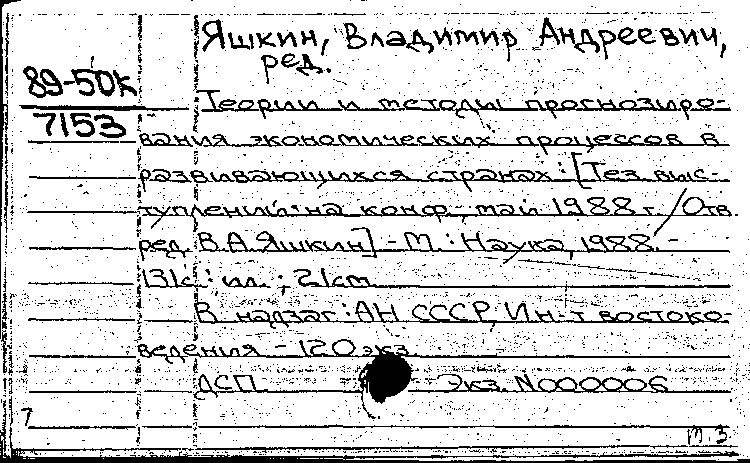 Яшкин, Владимир Андреевич,
ред.
89-50к
7153
Теории и методы прогнозиро-
вания экономических процессов в
развивающихся странах : [Тез. выс-
туплений на конф., май 1988 г. / Отв.
ред. В.А. Яшкин] - М. : Наука, 1988. -
131с. : ил. ; 21cm
В надзаг : АН СССР, Ин-т востоко-
ведения - 120 экз
ДСП. Экз. N000006
7
т. 3